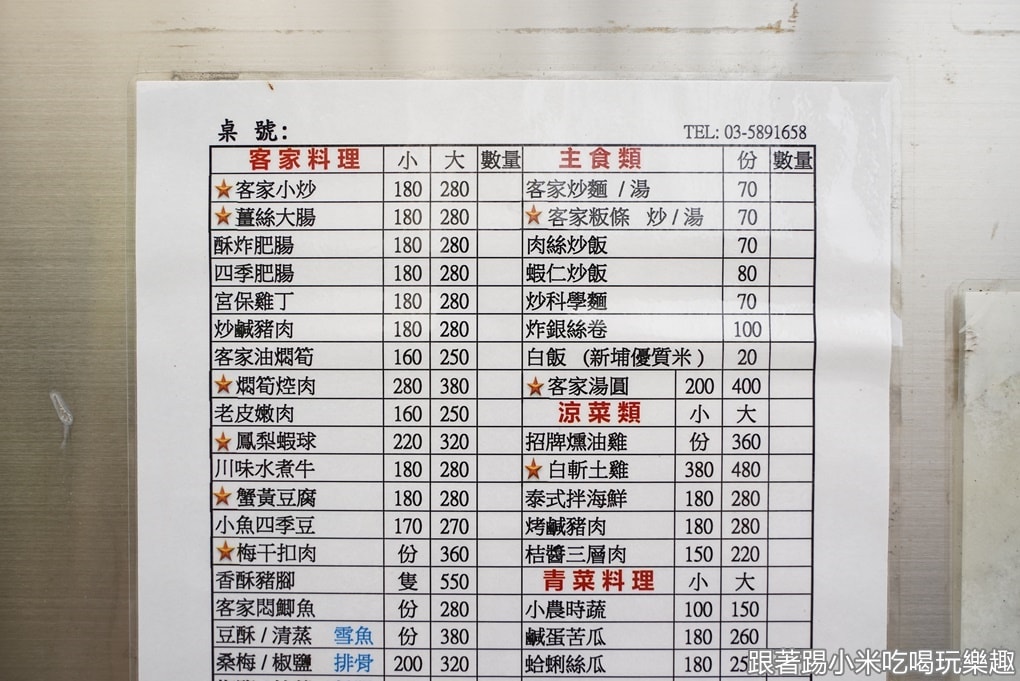 桌 號: TEL: 03-5891658
客家料理 小 大 數量 主食類 份 數量
★客家小炒 180 280 客家炒麵 / 湯 70
★薑絲大腸 180 280 ★客家粄條 炒 / 湯 70
酥炸肥腸 180 280 肉絲炒飯 70
四季肥腸 180 280 蝦仁炒飯 80
宮保雞丁 180 280 炒科學麵 70
炒鹹豬肉 180 280 炸銀絲卷 100
客家油燜筍 160 250 白飯 (新埔優質米) 20
★燜筍焢肉 280 380 ★客家湯圓 200 400
老皮嫩肉 160 250 涼菜類 小 大
★鳳梨蝦球 220 320 招牌燻油雞 份 360
川味水煮牛 180 280 ★白斬土雞 380 480
★蟹黃豆腐 180 280 泰式拌海鮮 180 280
小魚四季豆 170 270 烤鹹豬肉 180 280
★梅干扣肉 份 360 桔醬三層肉 150 220
香酥豬腳 隻 550 青菜料理 小 大
客家悶鯽魚 份 280 小農時蔬 100 150
豆酥 / 清蒸 雪魚 份 380 鹹蛋苦瓜 180 260
桑梅 / 椒鹽 排骨 200 320 蛤蜊絲瓜 180
跟著踢小米吃喝玩樂趣